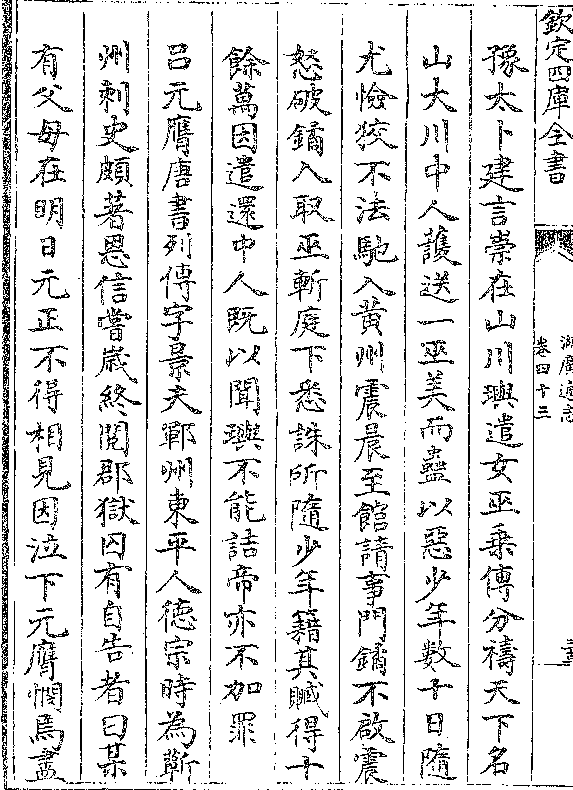 欽定四庫全書
湖廣通志
卷四十三
豫太卜建言祟在山川璵遣女巫乗傳分禱天下名
山大川中人護送一巫美而蠱以惡少年數十日隨
尤憸狡不法馳入黄州震晨至館請事門鐍不啟震
怒破鐍入取巫斬庭下悉誅所隨少年籍其贓得十
餘萬因遣還中人既以聞璵不能詰帝亦不加罪
吕元膺唐書列傳字景夫鄆州東平人德宗時為蘄
州刺史頗著恩信嘗歳終閲郡獄囚有自告者曰某
有父母在明日元正不得相見因泣下元膺憫焉盡